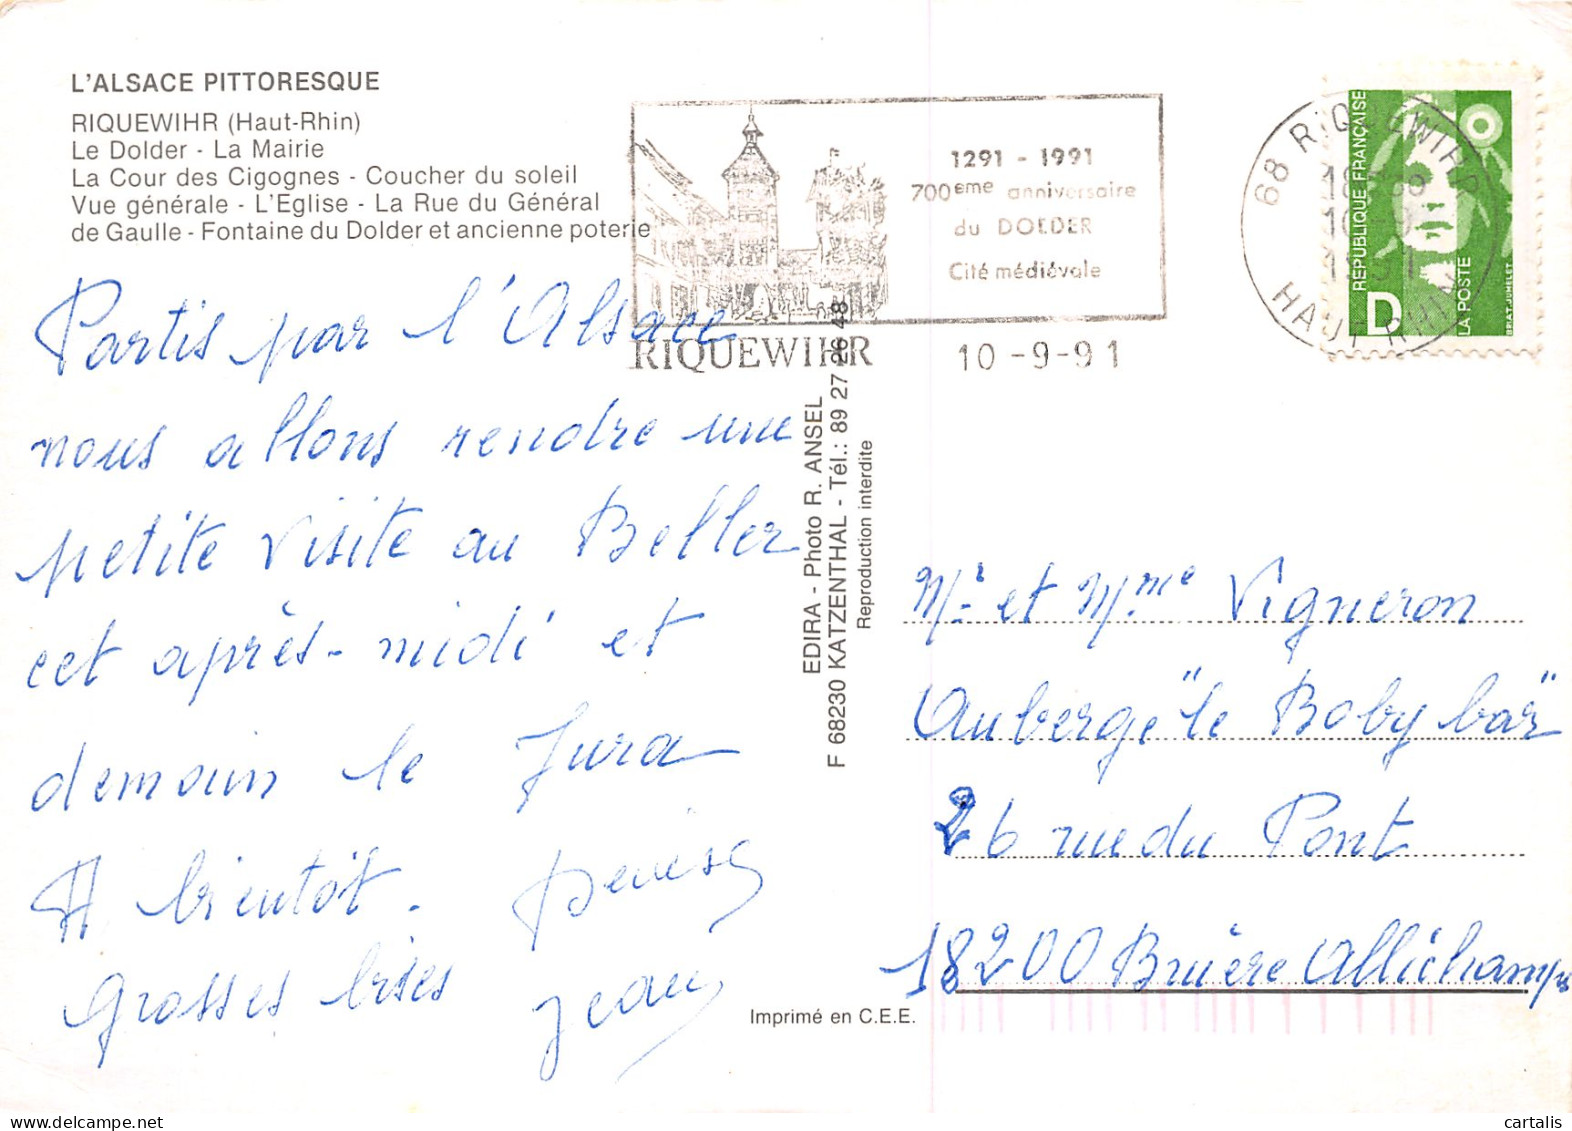 L'ALSACE PITTORESQUE
RIQUEWIHR (Haut-Rhin)
Le Dolder - La Mairie
La Cour des Cigognes - Coucher du soleil
Vue générale - L'Eglise - La Rue du Général
de Gaulle - Fontaine du Dolder et ancienne poterie
1291 - 1991
700eme anniversaire
du DOLDER
Cité médiévale
RIQUEWIHR
10 -9-91
68 RIQUEWIHR
HAUT RHIN
REPUBLIQUE FRANÇAISE
D
LA POSTE
BRIAT. JUMELET
Partis par l'Alsace
nous allons rendre une
petite visite au Beller
cet après-midi et
demain le Jura
A bientôt. Denise
grosses bises Jean
EDIRA - Photo R. ANSEL
F 68230 KATZENTHAL - Tél.: 89 27 26 48
Reproduction interdite
Mr et Mme Vigneron
Auberge "le Boby bar"
26 rue du Pont
18200 Bruère Allichamps
Imprimé en C.E.E.
cartalis